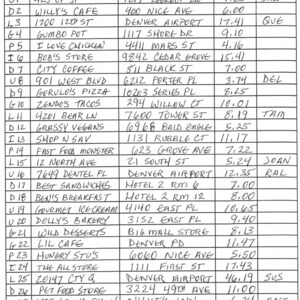 D2 WILLY'S CAFE 400 NICE AVE 6.00
L3 1700 12TH ST DENVER AIRPORT 17.41 QUE
G4 GUMBO POT 1117 SHORE DR 9.10
P5 I LOVE CHICKEN 4411 MARS ST 4.16
I6 BOB'S STORE 9842 CEDAR GROVE 15.41
D7 CITY COFFEE 811 BLACK ST 7.00
U8 901 WEST BLVD 6212 PORTER PL 3.74 DEL
D9 GORULO'S PIZZA 10203 SERIES PL 8.25
G10 ZENDO'S TACOS 294 WILLOW CT 10.01
L11 4201 BEAR LN 7600 TOWER ST 8.19 TAM
D12 GRASSY VEGANS 6968 BALD EAGLE 5.25
I13 SHOP N SAV 1131 RUBBLE CT 11.17
P14 FAST FOOD MONSTER 623 GROVE AVE 7.22
L15 12 NORTH AVE 21 SOUTH ST 5.24 JOAN
U16 7649 DENTEL PL DENVER AIRPORT 12.35 RAL
D17 BEST SANDWICHES HOTEL 2 RM 6 7.00
D18 BEN'S BREAKFAST HOTEL 2 RM 12 8.00
U19 GOURMET ICE CREAM 4140 EAST PL 10.65
U20 DOLLY'S BAKERY 3152 EAST PL 9.40
G21 WILD DESSERTS B16 MALL STORE 8.13
G22 LIL CAFE DENVER PD 11.47
P23 HUNGRY STU'S 6060 NICE AVE 5.50
I24 THE ALLSTORE 1111 FIRST ST 17.43
L25 20147 CITY ST DENVER AIRPORT 46.19 SUS
D26 PET FOOD STORE 3224 49TH AVE 11.00